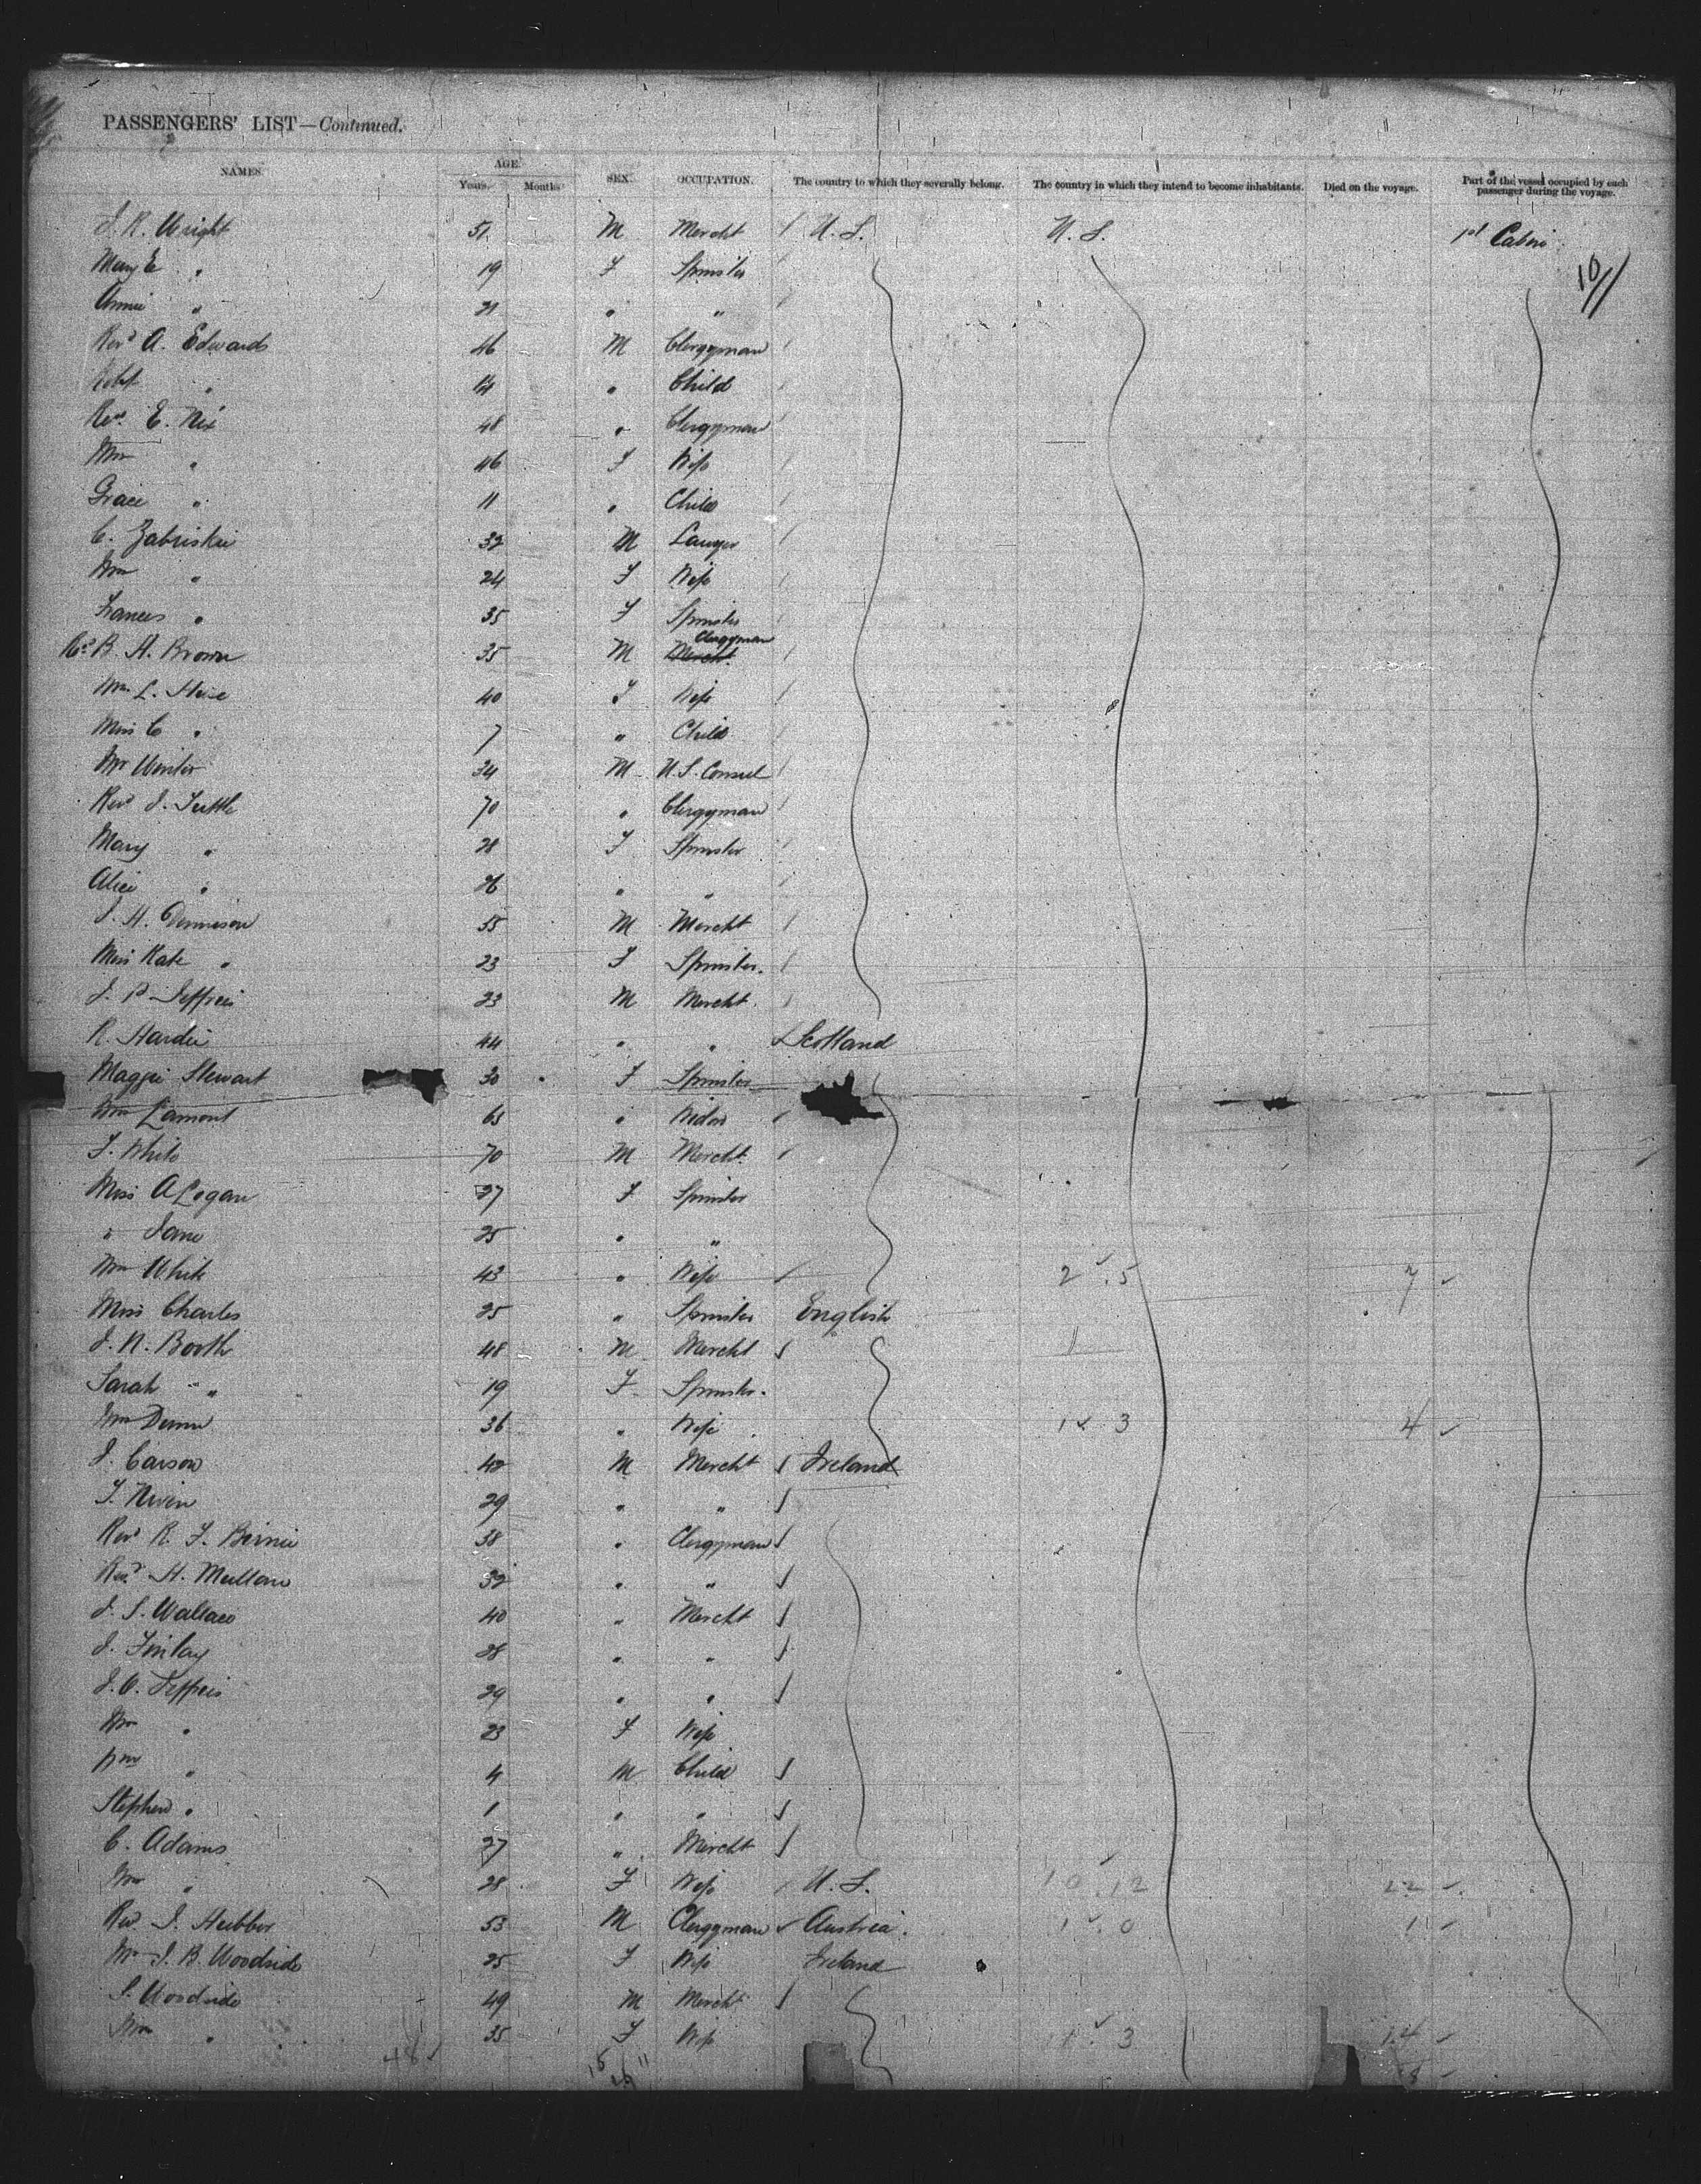 PASSENGERS' LIST—Continued.
NAMES. AGE. Years. Months SEX. OCCUPATION. The country to which they severally belong. The country in which they intend to become inhabitants. Died on the voyage. Part of the vessel occupied by each passenger during the voyage.
J. R. Wright 51 M Mercht U.S. U.S. 1st Cabin
Mary E " 19 F Spinster
Annie " 21 " "
Revd A. Edwards 46 M Clergyman
Robt " 14 " Child
Revd E. Nix 48 " Clergyman
Mrs " 46 F Wife
Grace " 11 " Child
C. Zabriskie 32 M Lawyer
Mrs " 24 F Wife
Frances " 35 F Spinster
Rev B. H. Brown 35 M Mercht Clergyman
Mrs L. 40 F Wife
Miss C " 7 " Child
Mr Winter 34 M U.S. Consul
Revd J. Tuttle 70 " Clergyman
Mary " 28 F Spinster
Alice " 26 " "
J. H. Dennison 55 M Mercht
Miss Kate " 23 F Spinster.
J. P. Jeffries 23 M Mercht.
R. Hardie 44 " " Scotland
Maggie Stewart 30 F Spinster
Mrs Lamont 65 " Widow
J. White 70 M Mercht.
Miss A Logan 27 F Spinster
" Jane 25 " "
Mrs White 43 " Wife 2 . 5 7
Miss Charles 25 " Spinster English
J. N. Booth 48 M Mercht
Sarah " 19 F Spinster.
Mrs Dunn 36 " Wife 1 . 3 4
J. Carson 42 M Mercht Ireland
J. Nivin 29 " "
Revd R. J. Birnie 38 " Clergyman
Revd H. Mullan 32 " "
J. S. Wallace 40 " Mercht
J. Finlay 28 " "
J. C. Jeffries 29 " "
Mrs " 23 F Wife
Wm " 4 M Child
Stephen " 1 " "
C. Adams 27 " Mercht
Mrs " 28 F Wife U.S. 10 . 12 22
Rev J. Hubber 53 M Clergyman Austria. 1 . 0 1
Mrs J. B. Woodside 25 F Wife Ireland
S. Woodside 49 M Mercht
Mrs " 35 F Wife 3 14
48